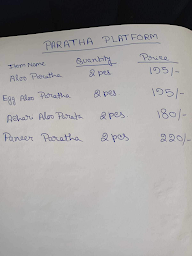 PARATHA PLATFORM
Item Name Quantity Price
Aloo Paratha 2 pcs 195/-
Egg Aloo Paratha 2 pcs 195/-
Achari Aloo Parata 2 pcs 180/-
Paneer Paratha 2 pcs 220/-